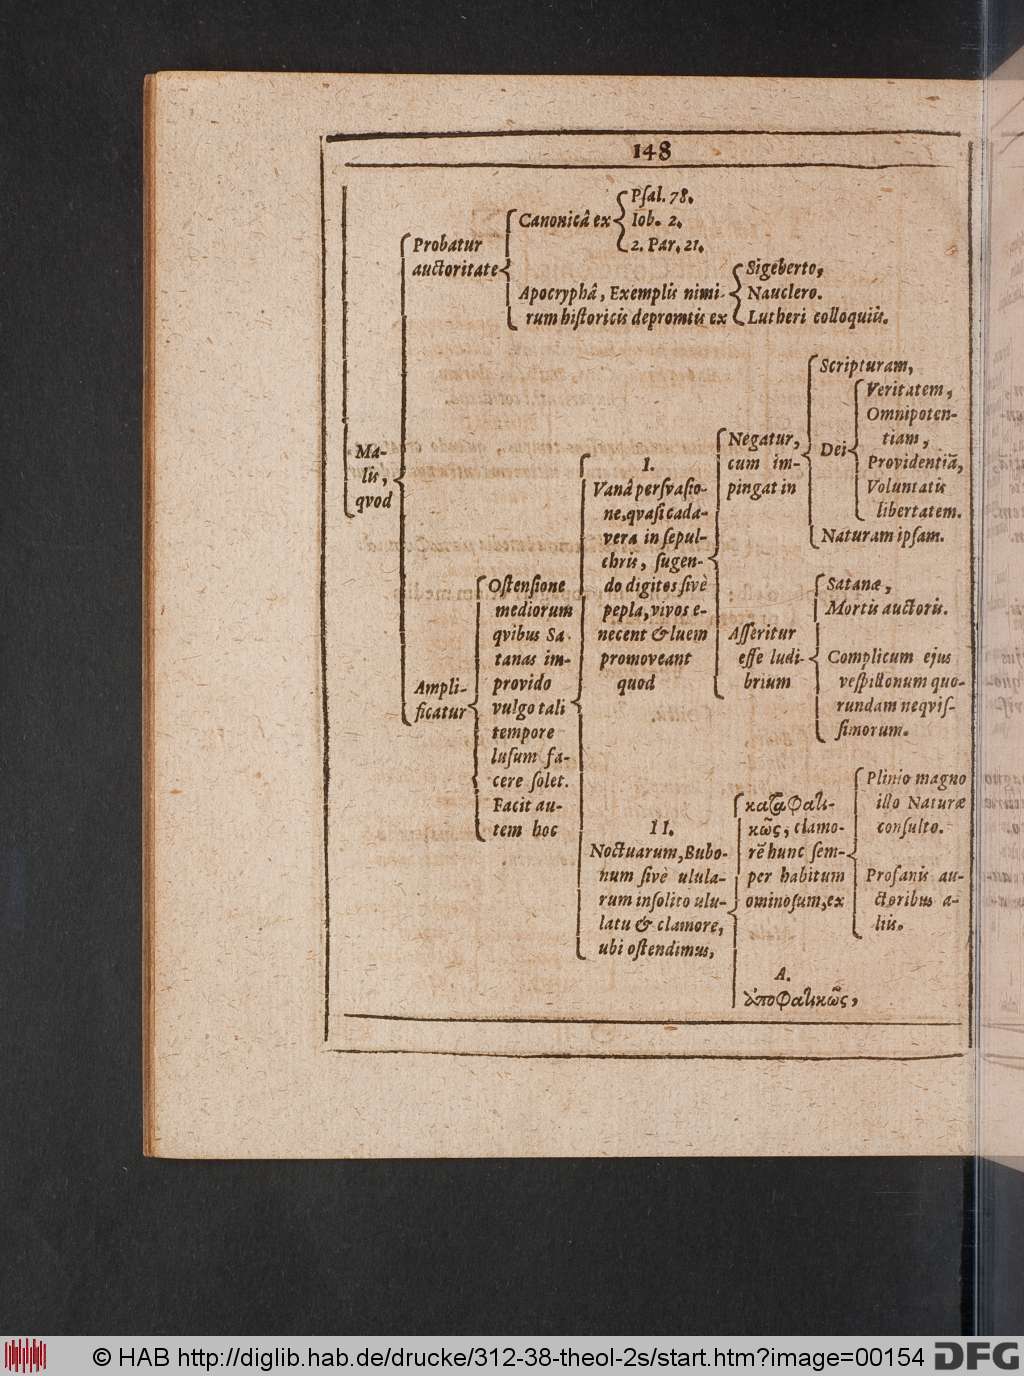 148
Probatur
auctoritate
Canonicâ ex
Psal. 78.
Iob. 2.
2. Par. 21.
Apocryphâ, Exemplis nimi-
rum historicis depromtis ex
Sigeberto,
Nauclero.
Lutheri colloquiis.
Ma-
lis,
qvod
Ampli-
ficatur
Ostensione
mediorum
qvibus Sa-
tanas im-
provido
vulgo tali
tempore
lusum fa-
cere solet.
Facit au-
tem hoc
I.
Vanâ persvasio-
ne, qvasi cada-
vera in sepul-
chris, sugen-
do digitos sivè
pepla, vivos e-
necent & luem
promoveant
quod
Negatur,
cum im-
pingat in
Scripturam,
Dei
Veritatem,
Omnipoten-
tiam,
Providentiã,
Voluntatis
libertatem.
Naturam ipsam.
Asseritur
esse ludi-
brium
Satanæ,
Mortis auctoris.
Complicum ejus
vespillonum quo-
rundam neqvis-
simorum.
II.
Noctuarum, Bubo-
num sivè ulula-
rum insolito ulu-
latu & clamore,
ubi ostendimus,
καταφατι-
κῶς, clamo-
rẽ hunc sem-
per habitum
ominosum, ex
Plinio magno
illo Naturæ
consulto.
Profanis au-
ctoribus a-
liis.
A.
ἀποφατικῶς,
© HAB http://diglib.hab.de/drucke/312-38-theol-2s/start.htm?image=00154
DFG